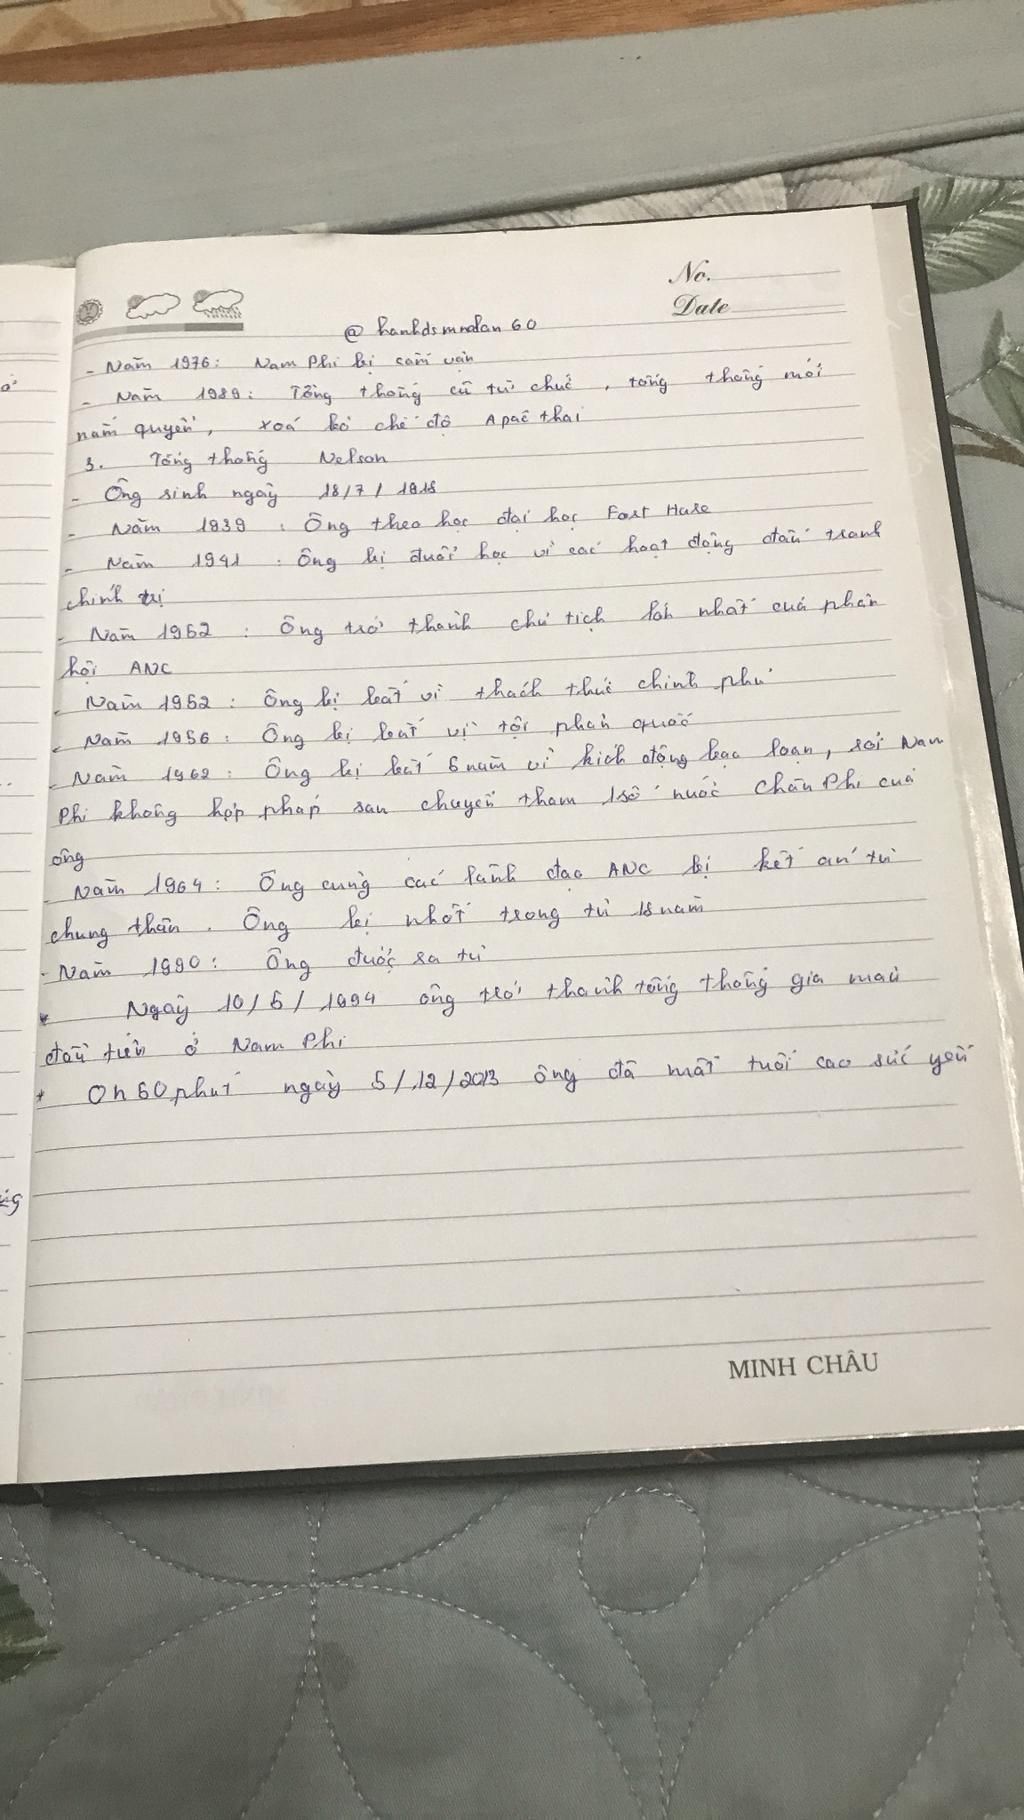 No.
Date
@hanhdsmndan60
- Năm 1976: Nam Phi bị cấm vận
- Năm 1989: Tổng thống cũ từ chức, tổng thống mới
nắm quyền, xoá bỏ chế độ Apac thai
3. Tổng thống Nelson
- Ông sinh ngày 18/7/1918
- Năm 1939: Ông theo học đại học Fort Hare
- Năm 1941: Ông bị đuổi học vì các hoạt động đấu tranh
chính trị
- Năm 1952: Ông trở thành chủ tịch lớn nhất của phân
hội ANC
- Năm 1952: Ông bị bắt vì thách thức chính phủ
- Năm 1956: Ông bị bắt vì tội phản quốc
- Năm 1962: Ông bị bắt 5 năm vì kích động bạo loạn, rời Nam
Phi không hợp pháp sau chuyến thăm 1 số nước Châu Phi của
ông
- Năm 1964: Ông cùng các lãnh đạo ANC bị kết án tù
chung thân. Ông bị nhốt trong tù 18 năm
- Năm 1990: Ông được ra tù
* Ngày 10/5/1994 ông trở thành tổng thống gia màu
đầu tiên ở Nam Phi
* 0h50 phút ngày 5/12/2013 ông đã mất tuổi cao sức yếu
MINH CHÂU